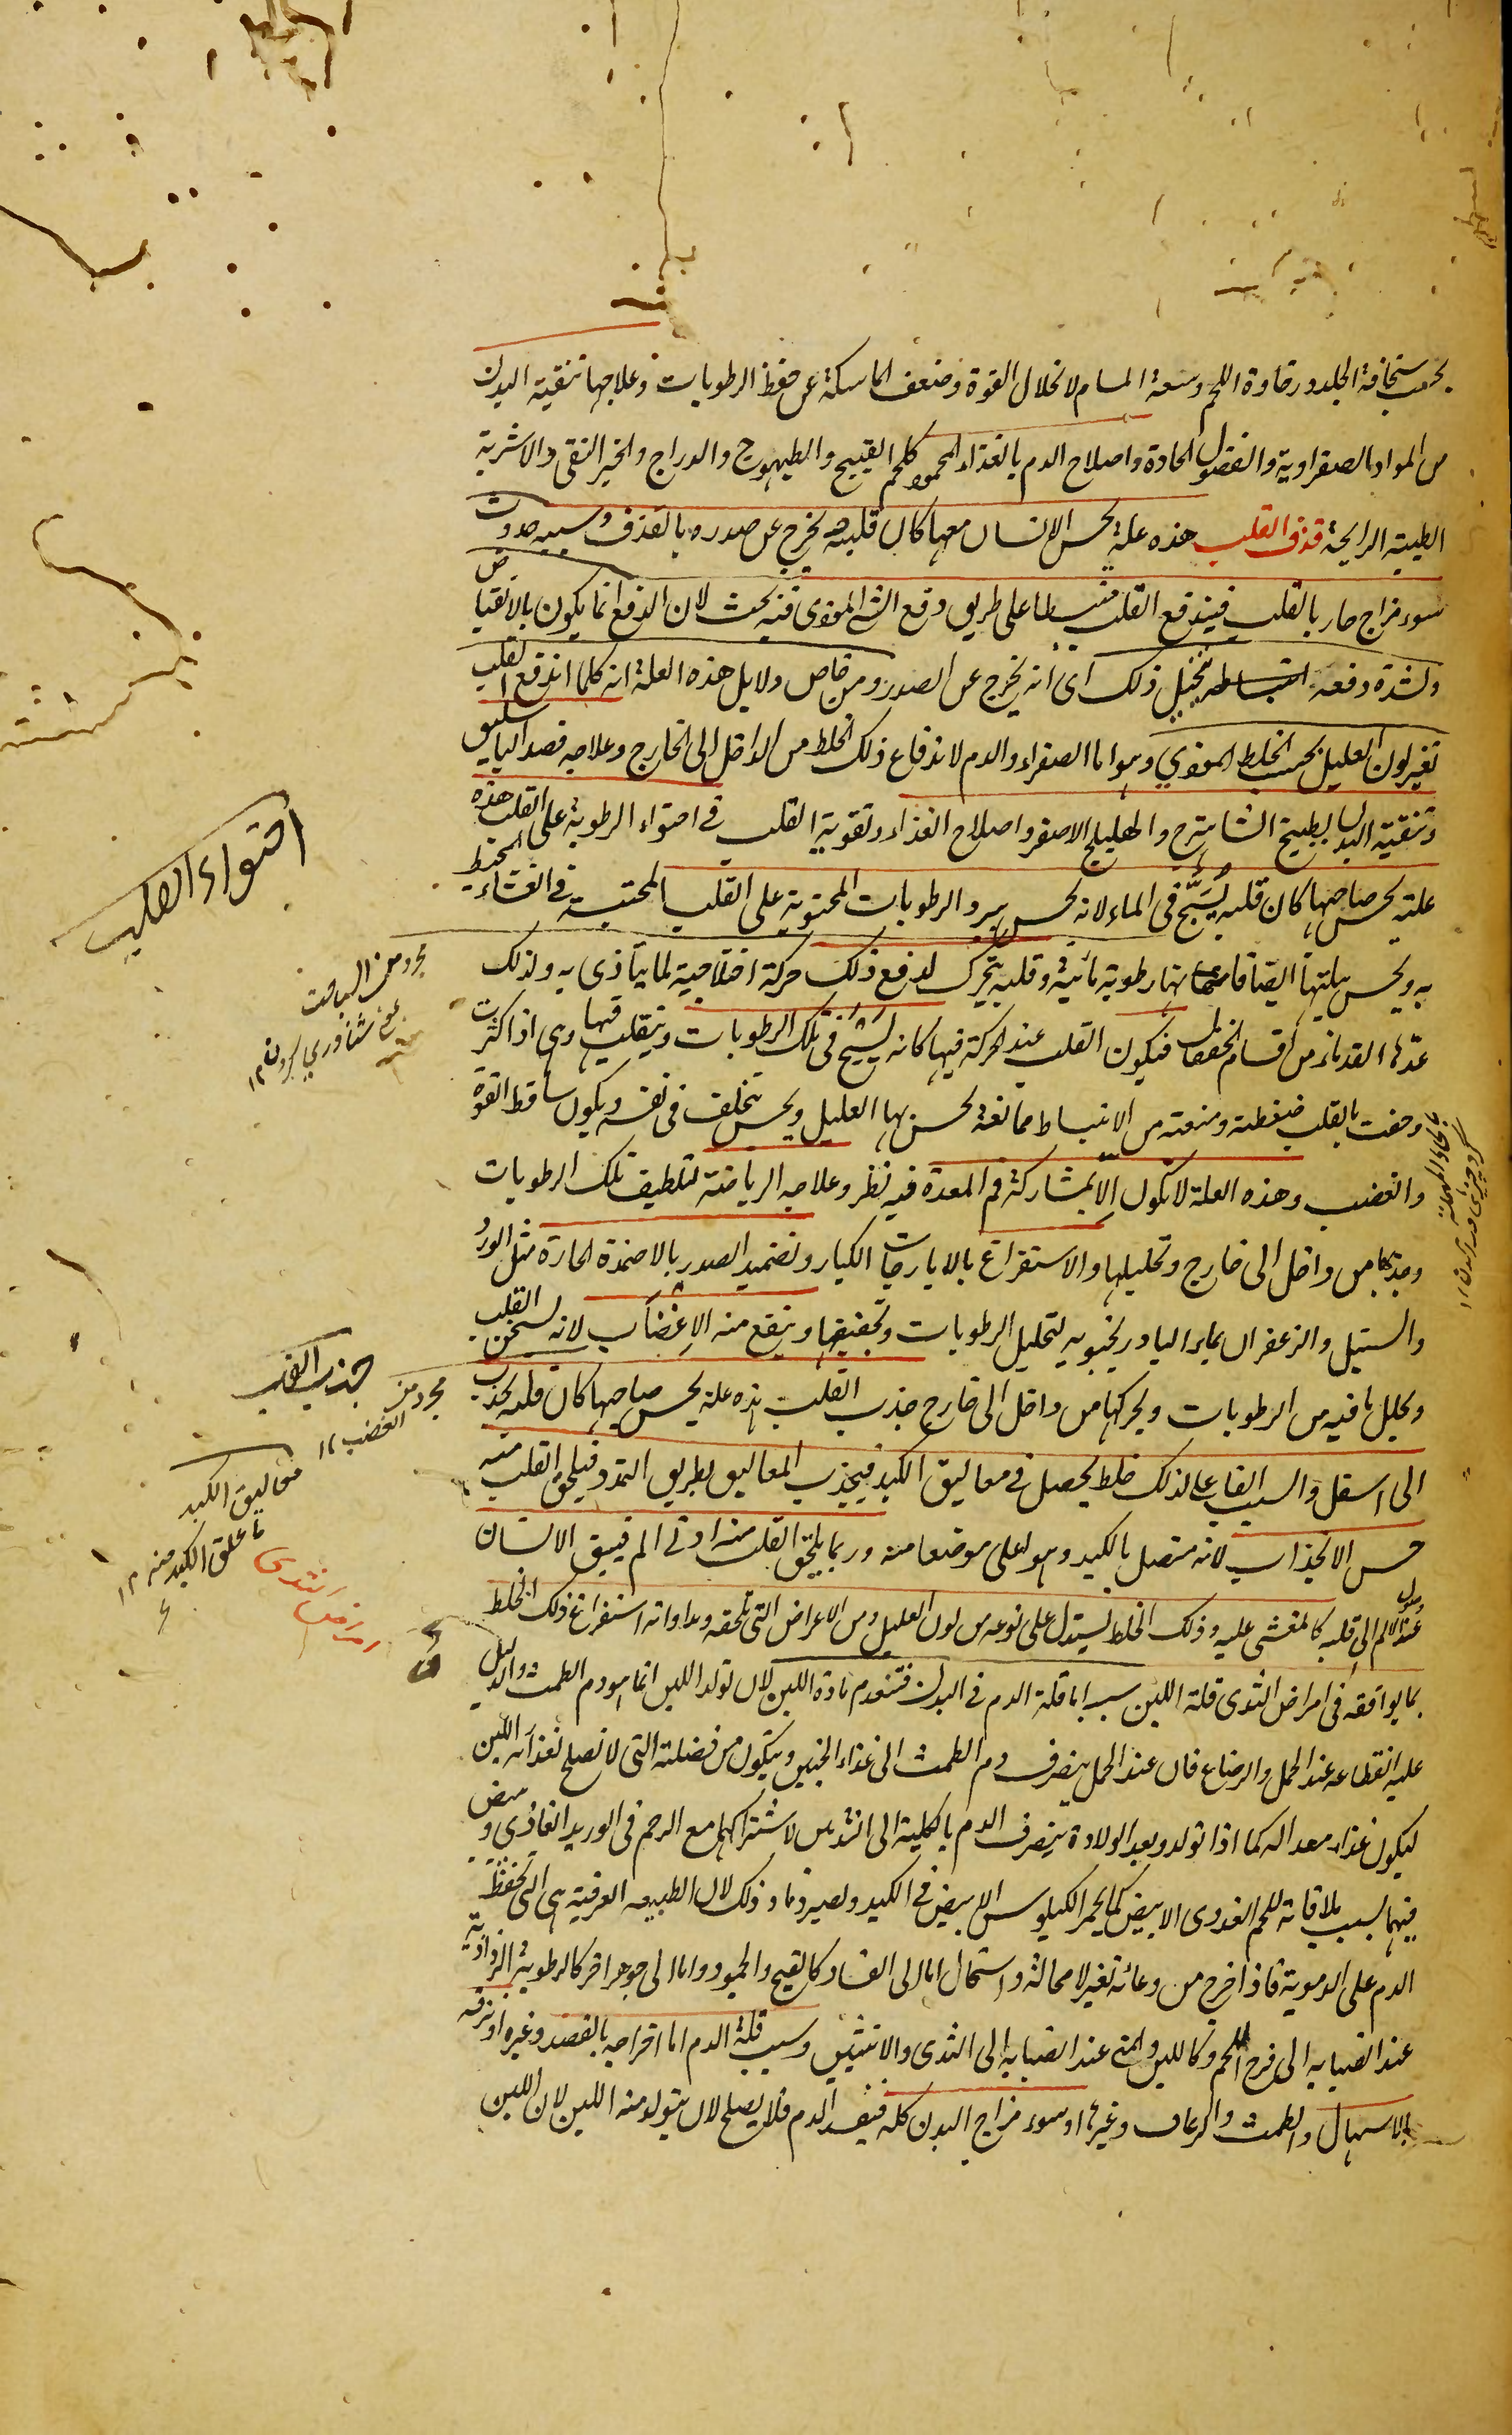 بحسب سخافة الجلد ورخاوة اللحم وسعة المسام لانحلال القوة وضعف الماسكة عن حفظ الرطوبات وعلاجها تنقية البدن
من المواد الصفراوية والفضول الحادة واصلاح الدم بالغذاء المحمود كلحم القبيج والطيهوج والدراج والخبز النقي والاشربة
الطيبة الرايحة قذف القلب هذه علة يحس الانسان معها كان قلبه يخرج عن صدره بالقذف وسببه حدوث
سوء مزاج حار بالقلب فيندفع القلب منبسطا على طريق دفع الشئ الموذى فيه بحث لان الدفع انما يكون بالانقباض
ولشدة دفعه انبساطه يتخيل ذلك اى انه يخرج عن الصدر ومن خاص دلايل هذه العلة انه كلما اندفع القلب
تغير لون العليل بحسب الخلط الموذي وهو اما الصفراء والدم لاندفاع ذلك الخلط من الداخل الى الخارج وعلاجه فصد الباسليق
وتنقية البدن بطبيخ الشاهترج والهليلج الاصفر واصلاح الغذاء وتقوية القلب في احتواء الرطوبة على القلب هذه
علته يحس صاحبها كان قلبه يسبح في الماء لانه يحس ببرد الرطوبات المحتوية على القلب المحتبسة في الغشاء المحيط
به ويحس ببلتها ايضا فانها رطوبة مائية وقلبه يتحرك لدفع ذلك حركة اختلاجية لما يتاذى به ولذلك
عدها القدماء من اقسام الخفقان فيكون القلب عند الحركة فيها كانه يسبح في تلك الرطوبات ويتقلب فيها وهى اذا كثرت
وحفت بالقلب ضغطته ومنعته من الانبساط ممانعة يحس بها العليل ويحس بتخلف في نفسه ويكون ساقط القوة
والغضب وهذه العلة لا تكون الا بمشاركة فم المعدة فيه نظر وعلاجه الرياضة لتلطيف تلك الرطوبات
وجذبها من داخل الى خارج وتحليلها والاستفراغ بالايارجات الكبار وتضميد الصدر بالاضمدة الحارة مثل الورد
والسنبل والزعفران بماء البادرنجبويه لتحليل الرطوبات وتجفيفها وينفع منه الاغضاب لانه يسخن القلب
ويحلل ما فيه من الرطوبات ويحركها من داخل الى خارج جذب القلب هذه علة يحس صاحبها كان قلبه يجذب
الى اسفل والسبب الفاعل لذلك خلط يحصل في معاليق الكبد فيجذب المعاليق بطريق التمدد فيلحق القلب منه
حس الانجذاب لانه متصل بالكبد وهو اعلى موضعا منه وربما يلحق القلب منه ادنى الم فيبقى الانسان
عند وصول الالم الى قلبه كالمغشى عليه وذلك الخلط يستدل على نوعه من لون العليل ومن الاعراض التي تلحقه ومداواته استفراغ ذلك الخلط
بما يوافقه في امراض الثدى قلة اللبن سببه اما قلة الدم في البدن فتنعدم مادة اللبن لان تولد اللبن انما هو دم الطمث والدليل
عليه انقطاعه عند الحمل والرضاع فان عند الحمل ينصرف دم الطمث الى غذاء الجنين ويتكون من فضلته التي لا تصلح لغذائه اللبن
ليكون غذاء معدا له كما اذا تولد وبعد الولادة ينصرف الدم بالكلية الى الثديين لاشتراكهما مع الرحم في الوريد الغاذى ويبيض
فيهما بسبب ملاقاته للحم الغددى الابيض كما يحمر الكيلوس الابيض في الكبد ويصير دما وذلك لان الطبيعة العرقية هى التي تحفظ
الدم على الدموية فاذا خرج من وعائه تغير لا محالة واستحال اما الى الفساد كالقيح والجمود واما الى جوهر اخر كالرطوبة الرذاذية
عند انصبابه الى فرج اللحم وكاللبن والمنى عند انصبابه الى الثدى والانثيين وسبب قلة الدم اما اخراجه بالفصد وغيره او نزفه
بالاسهال والطمث والرعاف وغيرها او سوء مزاج البدن كله فيفسد الدم فلا يصلح لان يتولد منه اللبن لان اللبن
احتواء القلب
جذب القلب
مجرد من الغضب ١٢
معاليق الكبد
ما علق الكبد منه ١٢
امراض الثدى